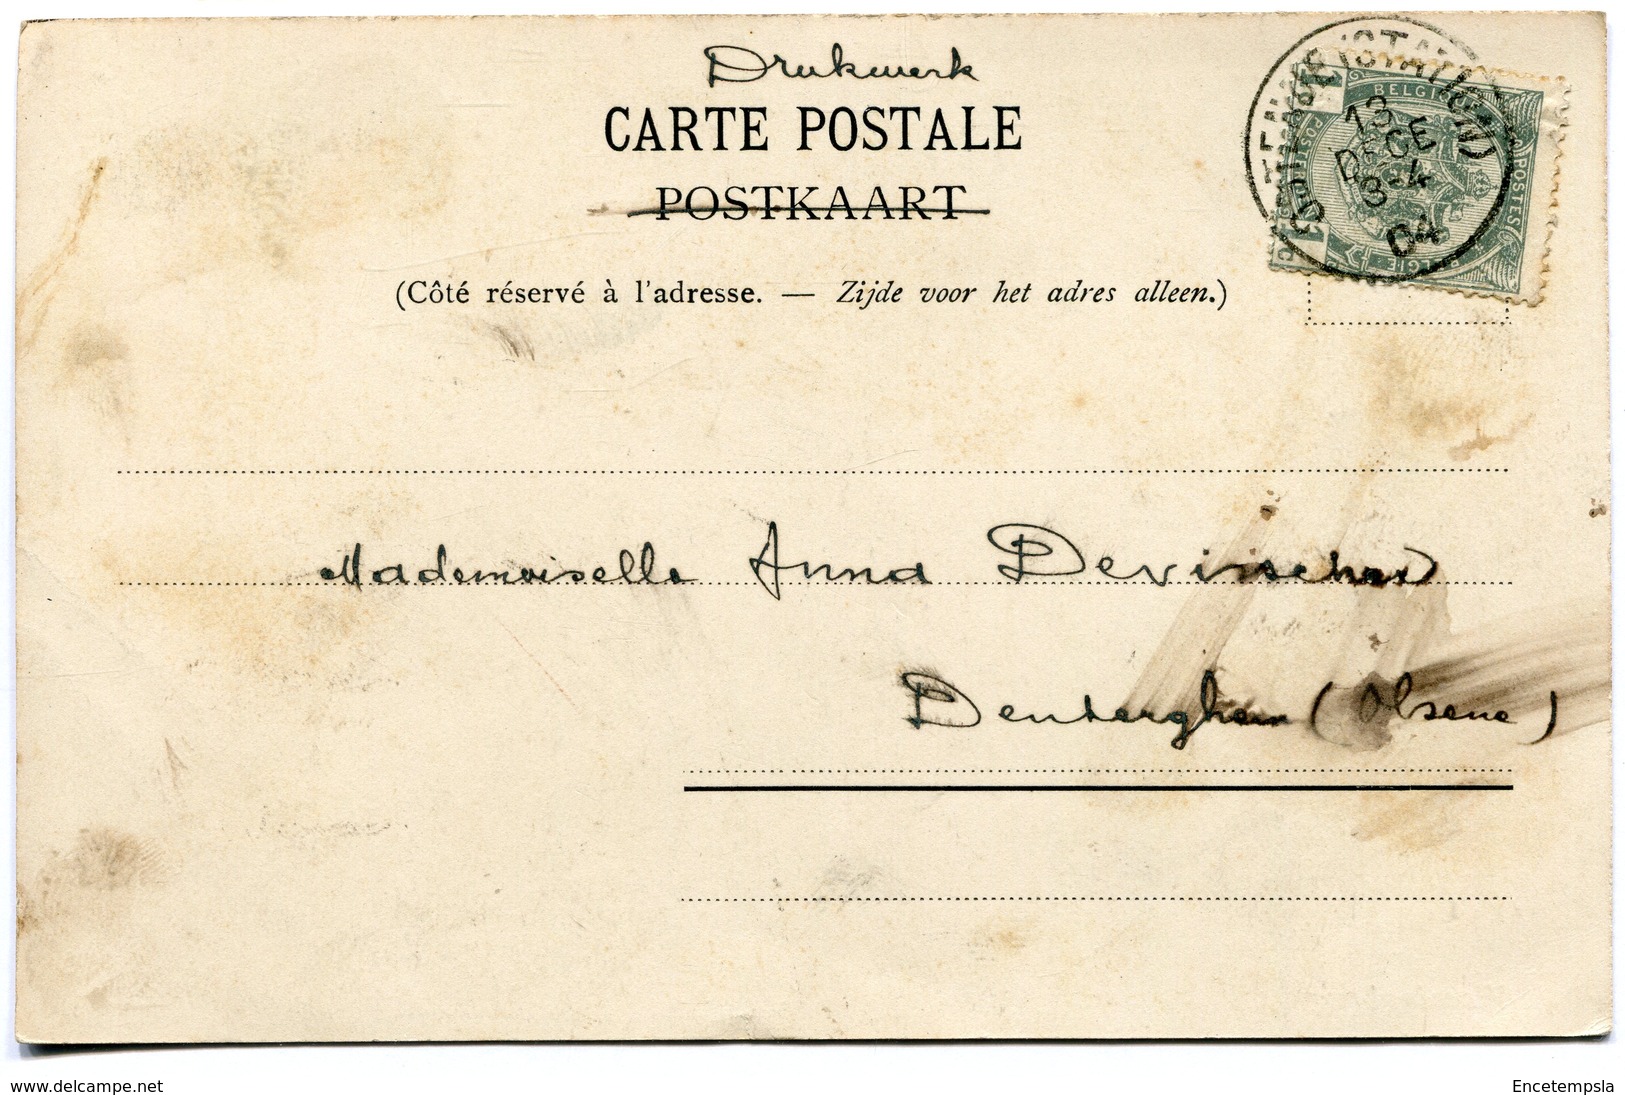 Drukwerk
CARTE POSTALE
POSTKAART
(Côté réservé à l'adresse. — Zijde voor het adres alleen.)
13
DECE
3-4
04
BELGIQUE
POSTES
BELGIE
1
1
Mademoiselle Anna Devisscher
Denterghem (Olsene)
www.delcampe.net
Encetempsla